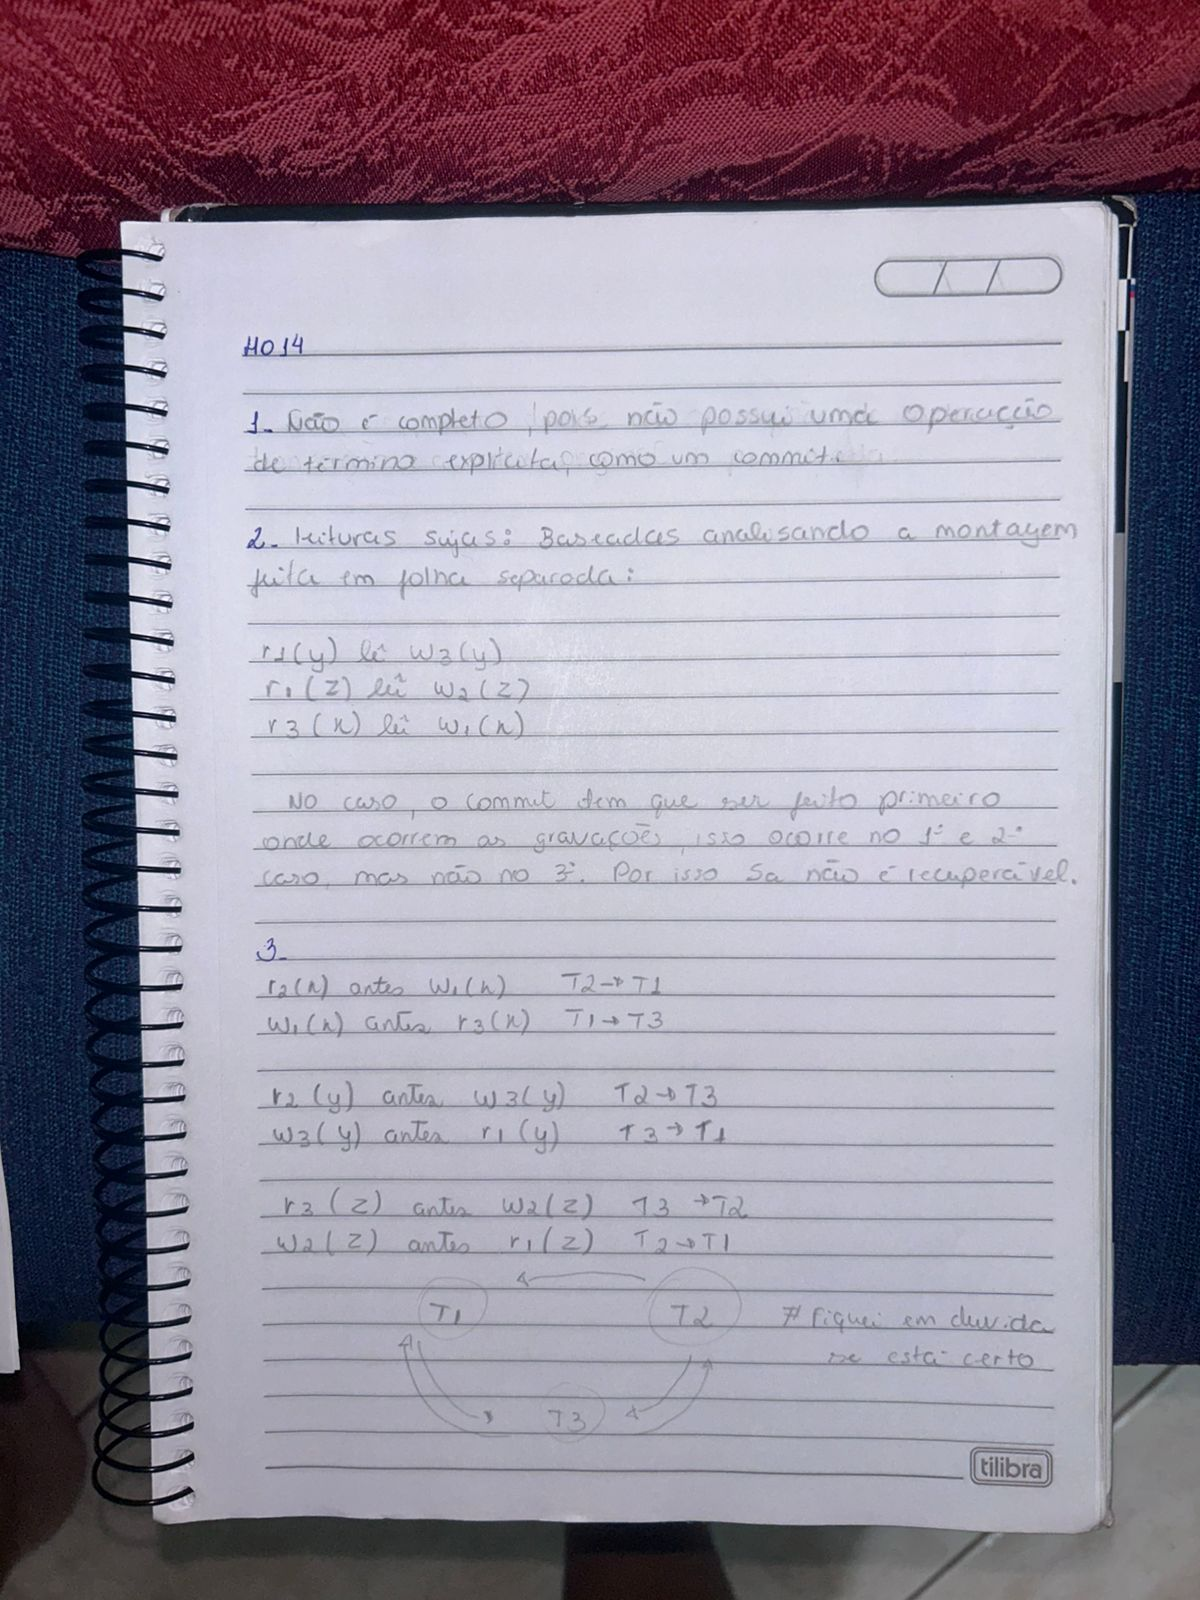 HO14
1- Não é completo, pois não possui uma operação
de término explicita, como um commit.
2- Leituras sujas: Baseadas analisando a montagem
feita em folha separada:
r1(y) lê w3(y)
r1(z) lê w2(z)
r3(x) lê w1(x)
No caso, o commit tem que ser feito primeiro
onde ocorrem as gravações, isso ocorre no 1º e 2º
caso, mas não no 3º. Por isso Sa não é recuperável.
3-
r2(x) antes w1(x) T2→T1
w1(x) antes r3(x) T1→T3
r2(y) antes w3(y) T2→T3
w3(y) antes r1(y) T3→T1
r3(z) antes w2(z) T3→T2
w2(z) antes r1(z) T2→T1
T1 T2 # Fiquei em duvida
se está certo
T3
tilibra